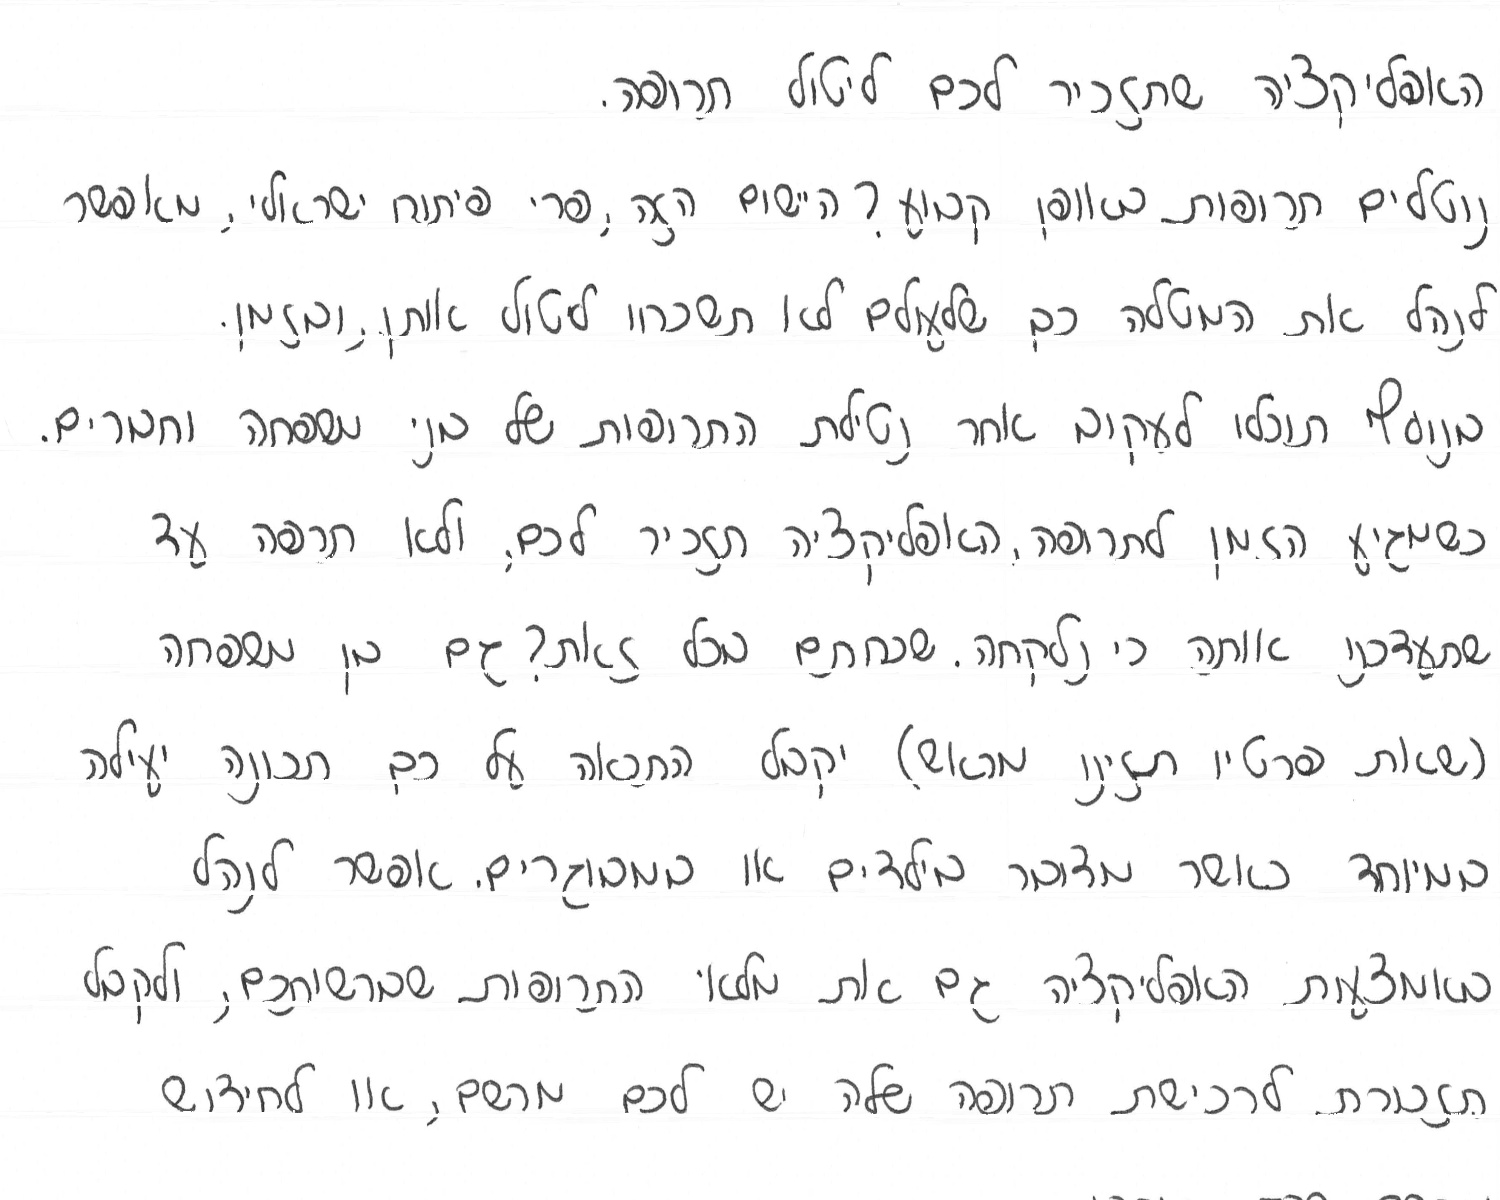 האפליקציה שתזכיר לכם ליטול תרופה.
נוטלים תרופות באופן קבוע? היישום הזה, פרי פיתוח ישראלי, מאפשר
לנהל את המטלה כך שלעולם לא תשכחו ליטול אותן, ובזמן.
בנוסף תוכלו לעקוב אחר נטילת התרופות של בני משפחה וחברים.
כשמגיע הזמן לתרופה, האפליקציה תזכיר לכם, ולא תרפה עד
שתעדכנו אותה כי נלקחה. שכחתם בכל זאת? גם בן משפחה
(שאת פרטיו תזינו מראש) יקבל התראה על כך תכונה יעילה
במיוחד כאשר מדובר בילדים או במבוגרים. אפשר לנהל
באמצעות האפליקציה גם את מלאי התרופות שברשותכם, ולקבל
תזכורת לרכישת תרופה שלה יש לכם מרשם, או לחידוש